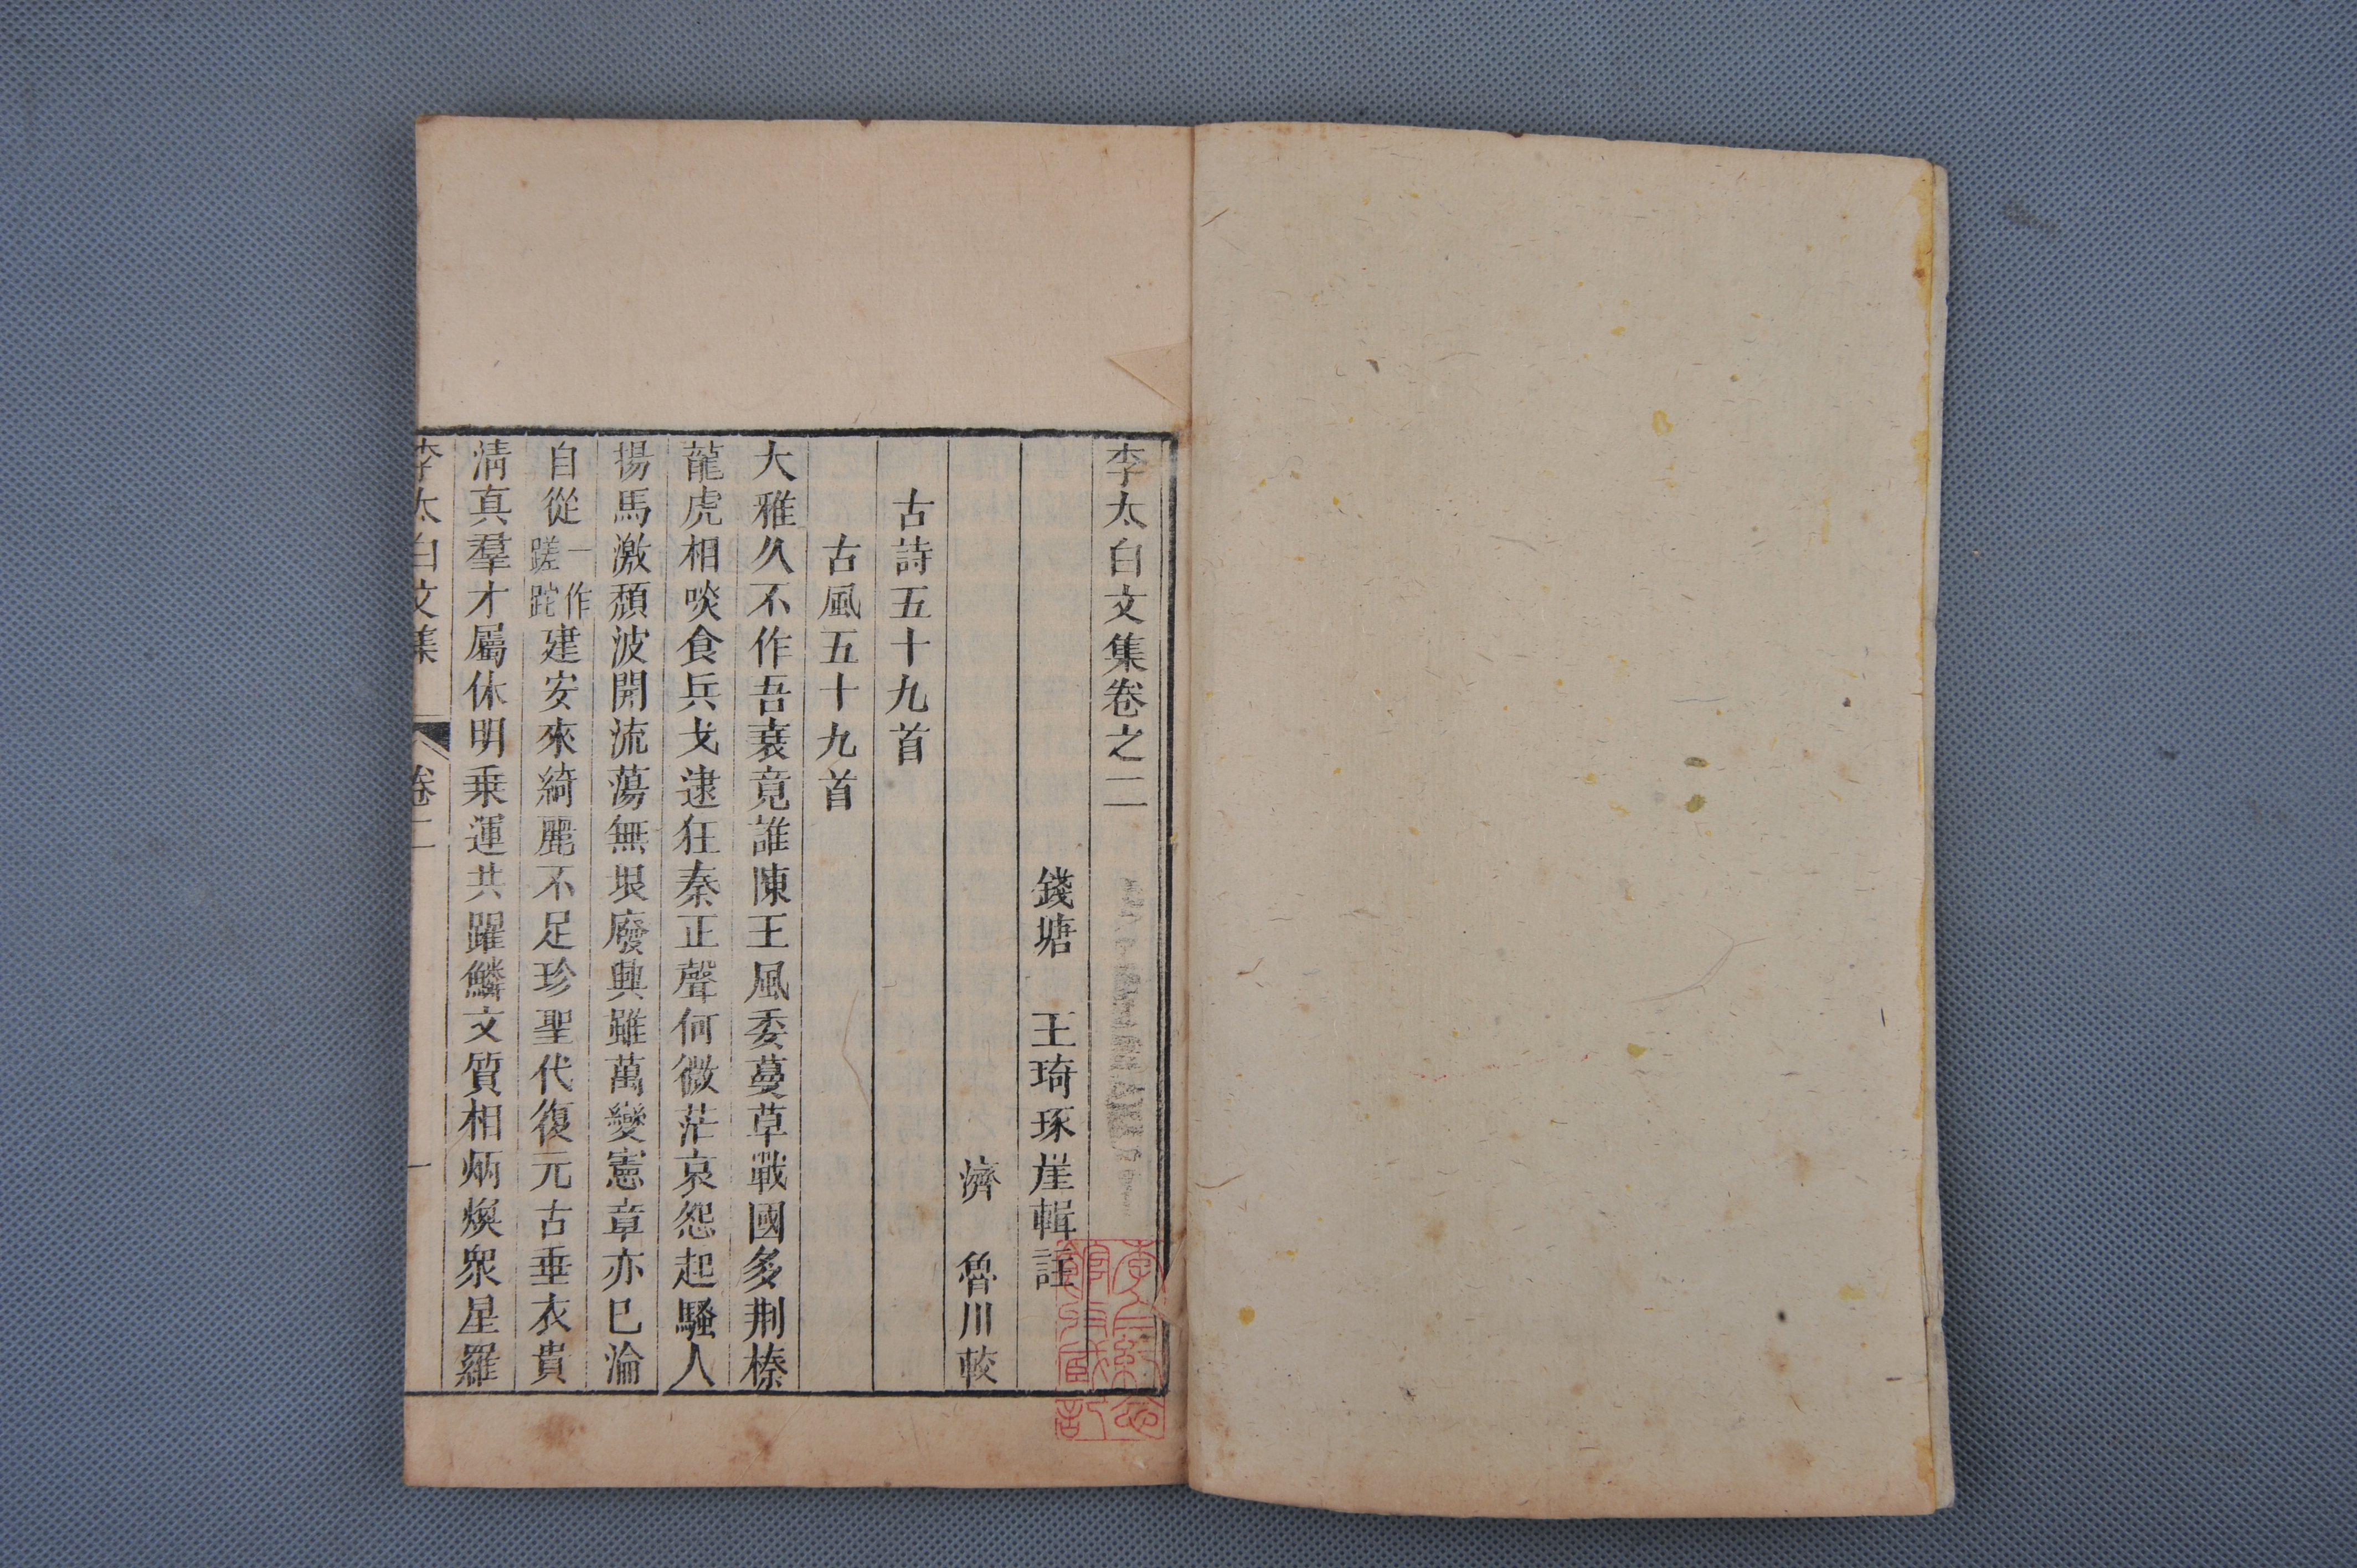 李太白文集卷之二
錢塘 王琦琢崖輯註
濟 魯川較
古詩五十九首
古風五十九首
大雅久不作吾衰竟誰陳王風委蔓草戰國多荆榛
龍虎相啖食兵戈逮狂秦正聲何微茫哀怨起騷人
揚馬激頹波開流蕩無垠廢興雖萬變憲章亦已淪
自從一作蹉跎建安來綺麗不足珍聖代復元古垂衣貴
清真羣才屬休明乗運共躍鱗文質相炳煥衆星羅
李太白文集 卷二 一